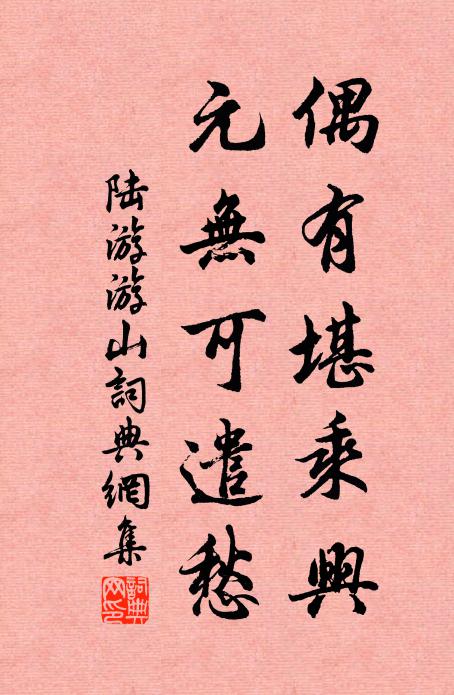 偶有堪乘興
元無可遣愁
陆游游山詞典網集
詞典網印